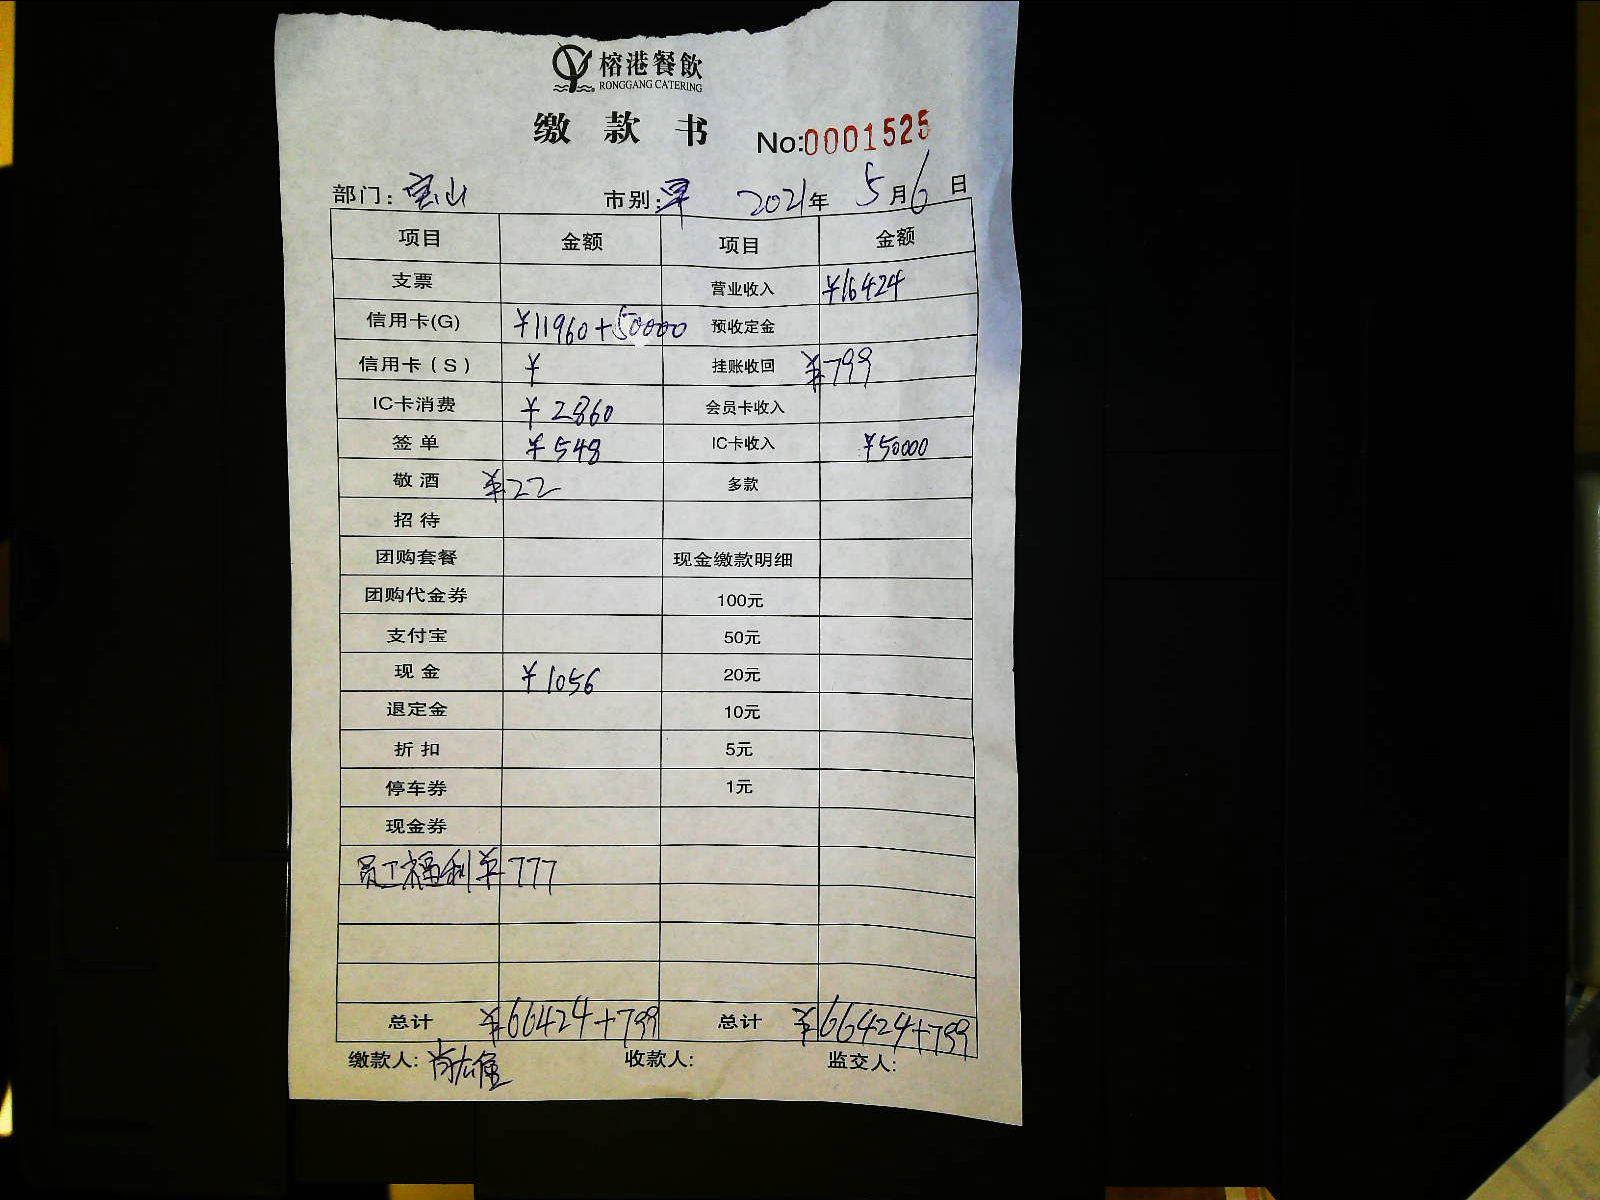 榕港餐飲
RONGGANG CATERING
缴款书 No:0001525
部门：宝山 市别：早 2021年5月6日
项目 金额 项目 金额
支票 营业收入 ¥16424
信用卡(G) ¥11960+50000 预收定金
信用卡（S） ¥ 挂账收回 ¥799
IC卡消费 ¥2860 会员卡收入
签单 ¥548 IC卡收入 ¥50000
敬酒 ¥22 多款
招待
团购套餐 现金缴款明细
团购代金券 100元
支付宝 50元
现金 ¥1056 20元
退定金 10元
折扣 5元
停车券 1元
现金券
员工福利 ¥777
总计 ¥66424+799 总计 ¥66424+799
缴款人: 收款人: 监交人: